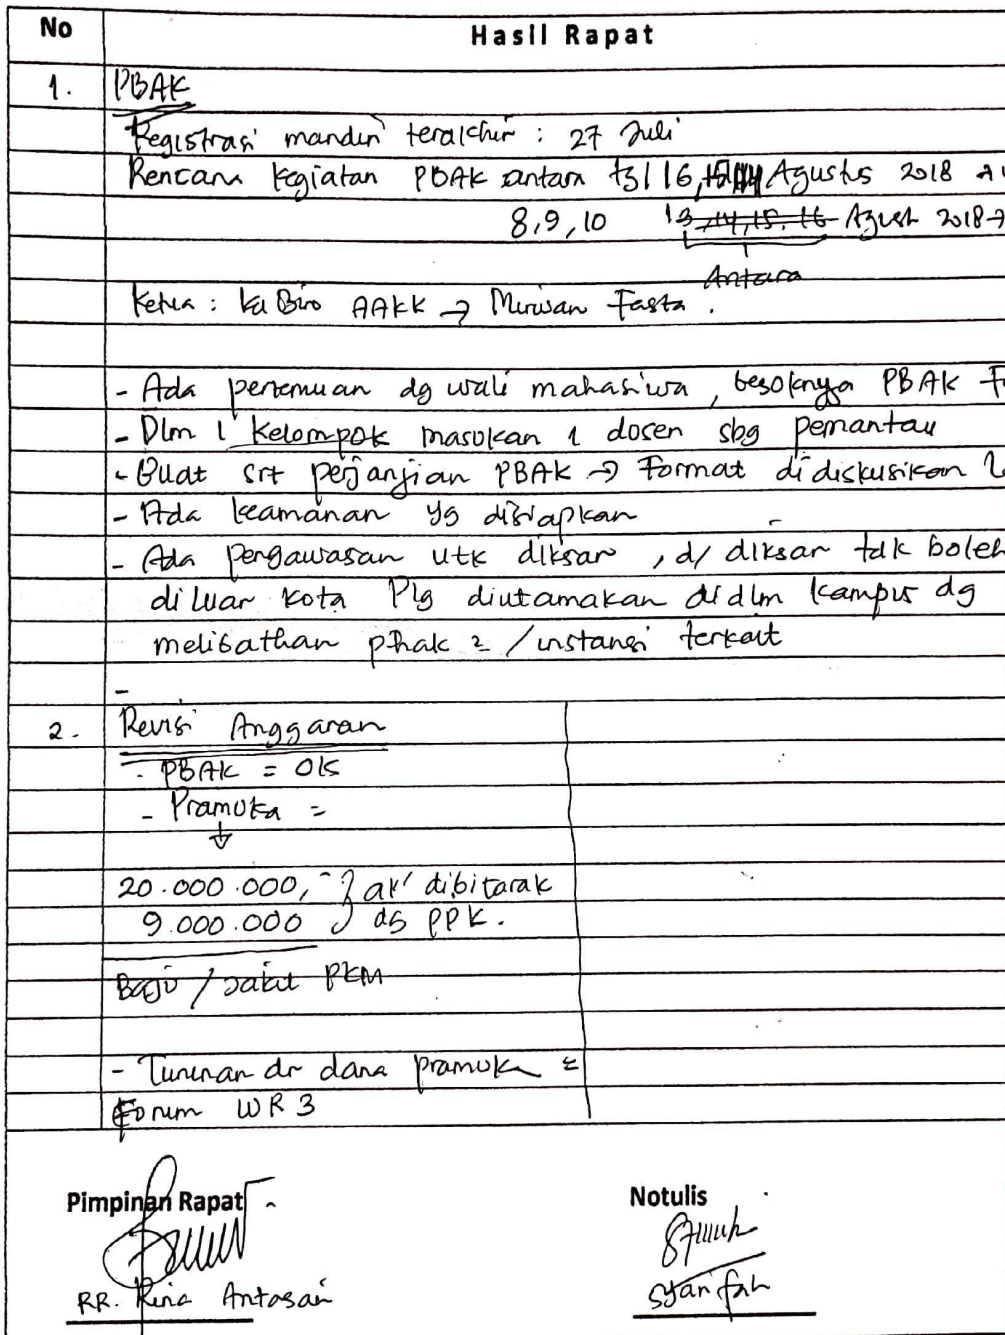 No Hasil Rapat
1. PBAK
Registrasi mandiri terakhir : 27 Juli
Rencana kegiatan PBAK antara 16, Agustus 2018
8,9,10 13,14,15,16 Agust 2018 →
Antara
Ketua : Ka Biro AAKK → Mirwan Fasta .
- Ada pertemuan dg wali mahasiwa, besoknya PBAK
- Dlm 1 Kelompok masukan 1 dosen sbg pemantau
- Buat srt perjanjian PBAK → Format didiskusikan
- Ada keamanan yg disiapkan
- Ada pengawasan utk diksar , d/ diksar tdk boleh
diluar kota Plg diutamakan didlm kampus dg
melibatkan pihak 2 / instansi terkait
-
2. Revisi Anggaran
- PBAK = OK
- Pramuka =
↓
20.000.000,- } dibitarak
9.000.000 } dg PPK.
Baju / PKM
- Turunan dr dana pramuka =
Forum WR 3
Pimpinan Rapat
RR. Rina Antasari
Notulis
Syarifah